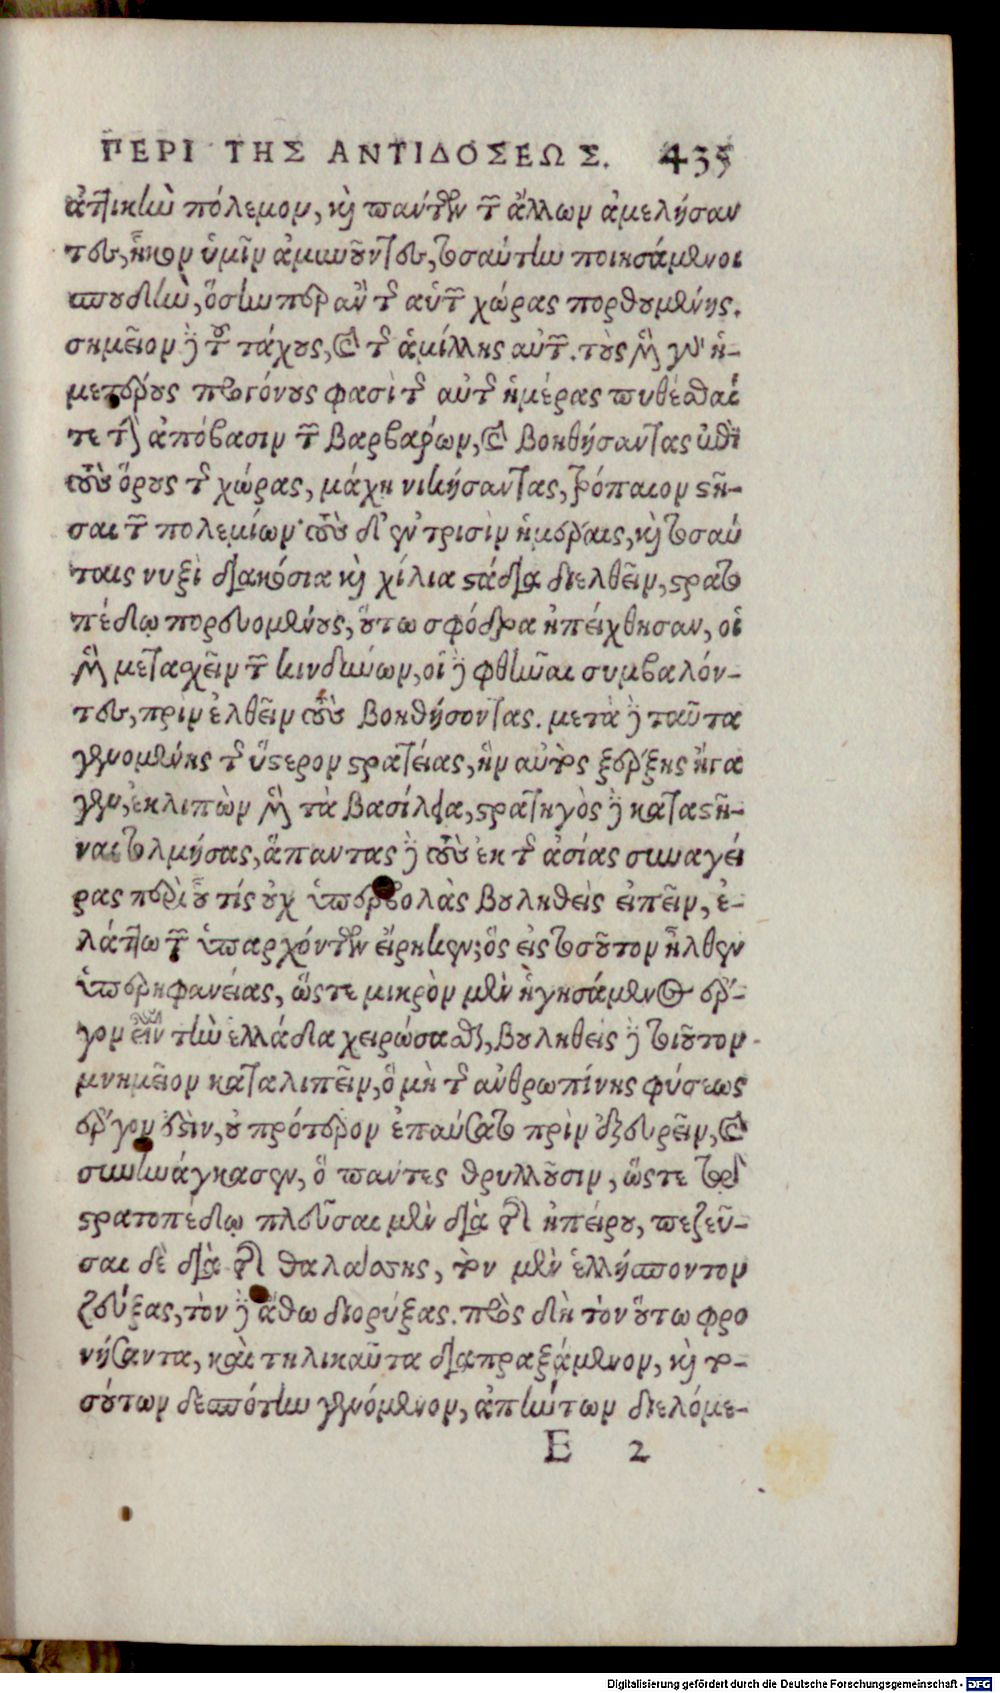 ΠΕΡΙ ΤΗΣ ΑΝΤΙΔΟΣΕΩΣ. 435
ἀττικὸν πόλεμον, καὶ πάντων τῶν ἄλλων ἀμελήσαν
τες, ἧκον ὑμῖν ἀμυνοῦντες, τοσαύτην ποιησάμενοι
σπουδὴν, ὅσην περ ἂν τῆς αὑτῶν χώρας πορθουμένης.
σημεῖον δὲ τοῦ τάχους, καὶ τῆς ἁμίλλης αὐτῶν. τοὺς μὲν γὰρ ἡ-
μετέρους προγόνους φασὶ τῆς αὐτῆς ἡμέρας πυθέσθαί
τε τὴν ἀπόβασιν τῶν βαρβάρων, καὶ βοηθήσαντας ἐπὶ
τοὺς ὅρους τῆς χώρας, μάχῃ νικήσαντας, τρόπαιον στῆ-
σαι τῶν πολεμίων· τοὺς δ' ἐν τρισὶν ἡμέραις, καὶ τοσαύ
ταις νυξὶ διακόσια καὶ χίλια στάδια διελθεῖν, στρατο
πέδῳ πορευομένους, οὕτω σφόδρα ἠπείχθησαν, οἱ
μὲν μετασχεῖν τῶν κινδύνων, οἱ δὲ φθῆναι συμβαλόν-
τες, πρὶν ἐλθεῖν τοὺς βοηθήσοντας. μετὰ δὲ ταῦτα
γενομένης τῆς ὕστερον στρατείας, ἣν αὐτὸς ξέρξης ἤγα
γεν, ἐκλιπὼν μὲν τὰ βασίλεια, στρατηγὸς δὲ καταστῆ-
ναι τολμήσας, ἅπαντας δὲ τοὺς ἐκ τῆς ἀσίας συναγεί
ρας περὶ οὗ τίς οὐχ ὑπερβολὰς βουληθεὶς εἰπεῖν, ἐ-
λάττω τῶν ὑπαρχόντων εἴρηκεν; ὃς εἰς τοσοῦτον ἦλθεν
ὑπερηφανείας, ὥστε μικρὸν μὲν ἡγησάμενος ἔρ-
γον εἶναι τὴν ἑλλάδα χειρώσασθαι, βουληθεὶς δὲ τοιοῦτον
μνημεῖον καταλιπεῖν, ὃ μὴ τῆς ἀνθρωπίνης φύσεως
ἔργον ἐστὶν, οὐ πρότερον ἐπαύσατο πρὶν ἐξευρεῖν, καὶ
συνηνάγκασεν, ὃ πάντες θρυλλοῦσιν, ὥστε τῷ
στρατοπέδῳ πλεῦσαι μὲν διὰ τῆς ἠπείρου, πεζεῦ-
σαι δὲ διὰ τῆς θαλάσσης, τὸν μὲν ἑλλήσποντον
ζεύξας, τὸν δὲ ἄθω διορύξας. πρὸς δὴ τὸν οὕτω φρο
νήσαντα, καὶ τηλικαῦτα διαπραξάμενον, καὶ το-
σούτων δεσπότην γενόμενον, ἀπήντων διελόμε-
E 2
Digitalisierung gefördert durch die Deutsche Forschungsgemeinschaft - DFG